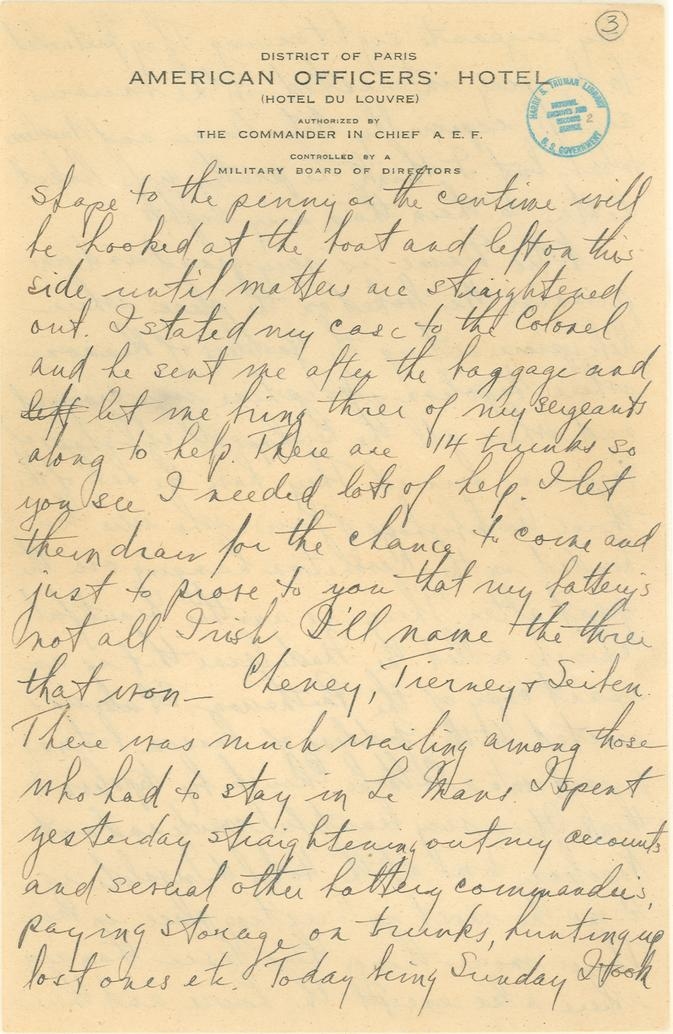 3
DISTRICT OF PARIS
AMERICAN OFFICERS' HOTEL
(HOTEL DU LOUVRE)
AUTHORIZED BY
THE COMMANDER IN CHIEF A. E. F.
CONTROLLED BY A
MILITARY BOARD OF DIRECTORS
HARRY S. TRUMAN LIBRARY
NATIONAL
ARCHIVES AND
RECORDS
SERVICE
2
U. S. GOVERNMENT
shape to the penny or the centime will
be hooked at the boat and left on this
side until matters are straightened
out. I stated my case to the Colonel
and he sent me after the baggage and
left let me bring three of my sergeants
along to help. There are 14 trunks so
you see I needed lots of help. I let
them draw for the chance to come and
just to prove to you that my battery's
not all Irish I'll name the three
that won — Cheney, Tierney & Seiben.
There was much wailing among those
who had to stay in Le Mans. I spent
yesterday straightening out my accounts
and several other battery commanders,
paying storage on trunks, hunting up
lost ones etc. Today being Sunday I took